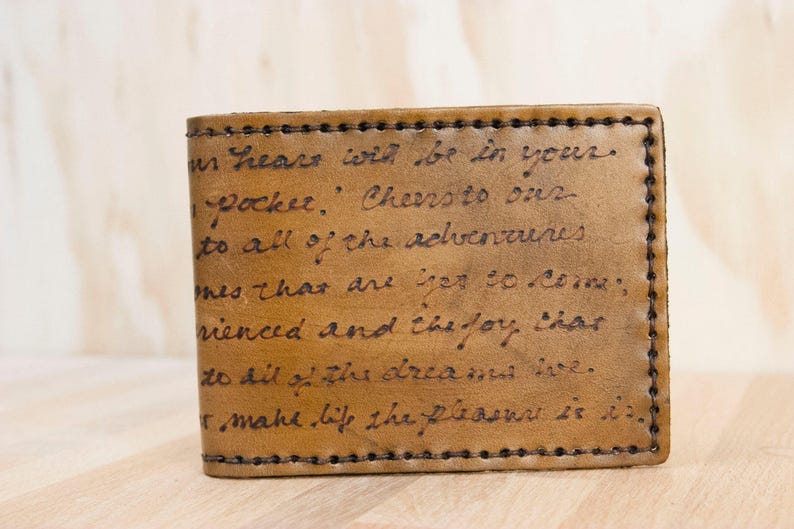 ur heart will be in your
pocket.' Cheers to our
to all of the adventures
mes that are yet to come,
rienced and the joy that
to all of the dreams we
make life the pleasure it is.